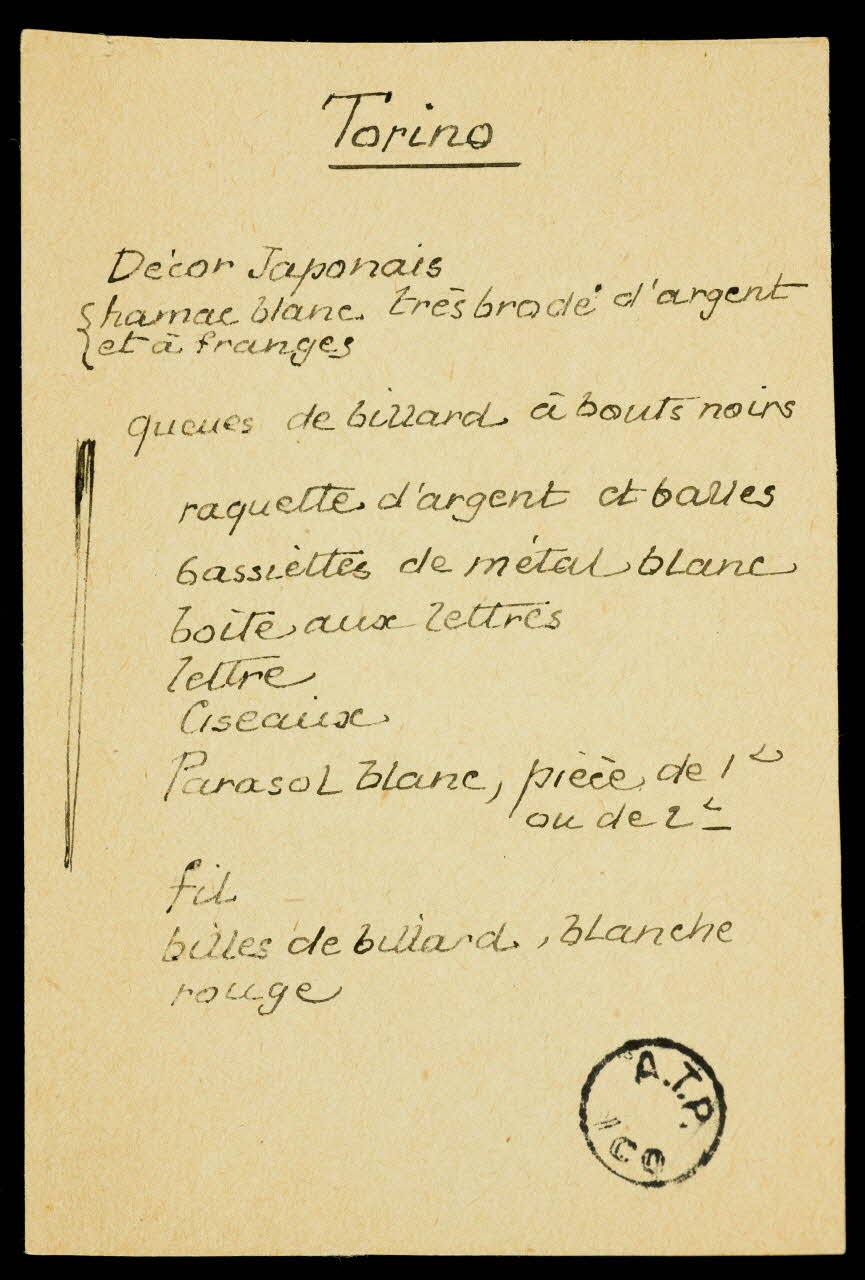 Torino
Décor Japonais
hamac blanc. très brodé d'argent
et à franges
queues de billard à bouts noirs
raquette d'argent et balles
6 assiettes de métal blanc
boîte aux lettres
lettre
Ciseaux
Parasol blanc, pièce de 1 L
ou de 2 L
fil
billes de billard, blanche
rouge
A.T.P.
ICO